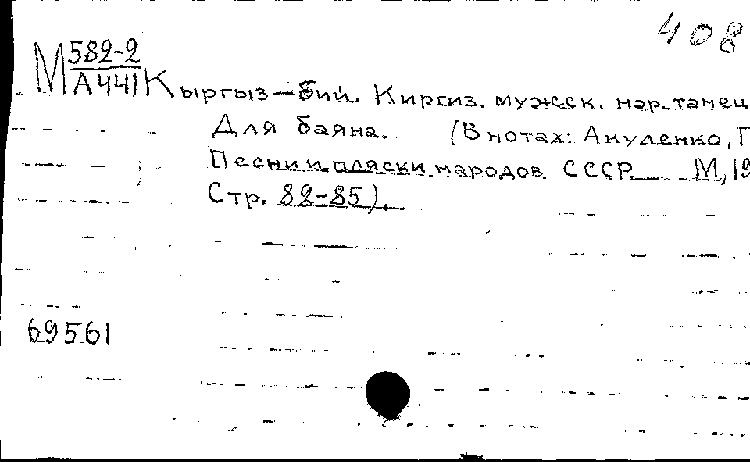 408
М 582-2
А441 Кыргыз-бий. Киргиз. мужск. нар. танец
Для баяна. (В нотах: Акуленко, Г
Песни и пляски народов СССР М, 19
Стр. 82-85).
69561